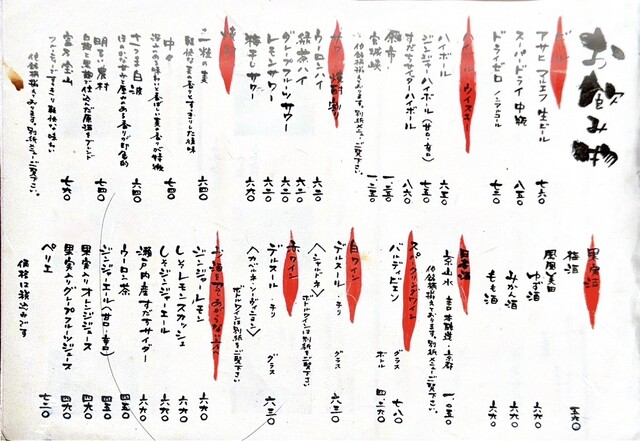 お飲み物
ビール
アサヒ マルエフ 生ビール 七六〇
スーパードライ 中瓶 八五〇
ドライゼロ ノンアルコール 七三〇
ハイボール ウイスキー
ハイボール 六五〇
ジンジャーハイボール(甘口・辛口) 七五〇
すだちサイダーハイボール 八六〇
宮城峡
サワー 焼酎割り
ウーロンハイ 六二〇
緑茶ハイ 六二〇
グレープフルーツサワー 六二〇
レモンサワー 六二〇
梅干しサワー 六六〇
焼酎
二 穂の実 六四〇
中々 七四〇
さつま白波 六四〇
明るい農村 七四〇
富乃宝山 七六〇
他銘柄揃えております。別紙メニューご覧下さい。
果実酒
梅酒 五六〇
鳳凰美田
ゆず酒 六六〇
みかん酒 六六〇
もも酒 六六〇
日本酒
他銘柄揃えております。別紙メニューご覧下さい。
スパークリングワイン
グラス 七八〇
ボトル
白ワイン
デルスール・チリ グラス 六三〇
〈シャルドネ〉
ボトルワインは別紙をご覧下さい
赤ワイン
デルスール・チリ グラス 六三〇
〈カベルネ・ソーヴィニヨン〉
ボトルワインは別紙をご覧下さい
お酒を召しあがらない方へ
ジンジャーレモン 六六〇
しそレモンスカッシュ 六六〇
しそジンジャーエール 六六〇
瀬戸内産すだちサイダー 六六〇
ウーロン茶 四五〇
ジンジャーエール(甘口・辛口) 四五〇
果実入りオレンジジュース 四六〇
果実入りグレープフルーツジュース 四六〇
ペリエ 七二〇
価格は税込みです